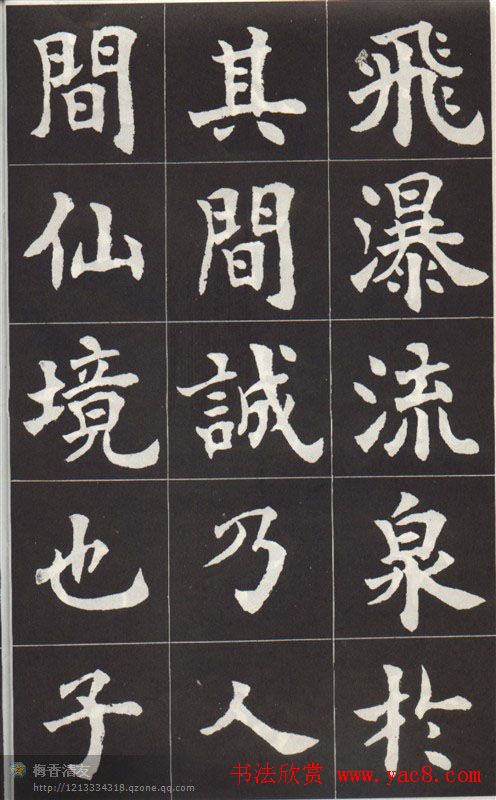 飛瀑流泉於
其間誠乃人
間仙境也子
梅香清友
http://1213334318.qzone.qq.com
书法欣赏 www.yac8.com